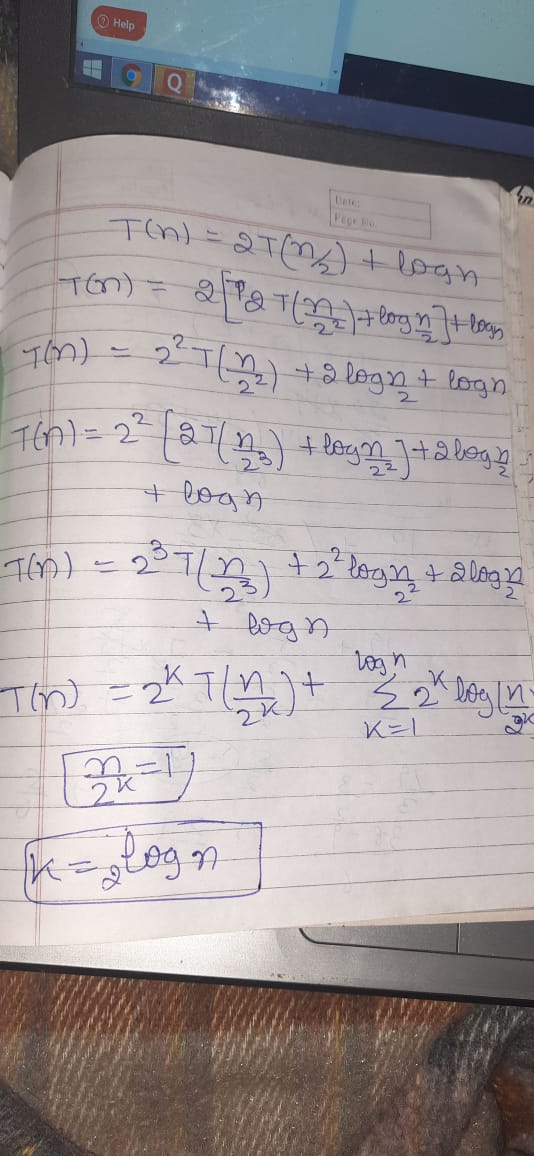 Help
Q
Date:
Page No.
T(n) = 2T(n/2) + logn
T(n) = 2[2T(n/2²) + log n/2] + logn
T(n) = 2² T(n/2²) + 2 log n/2 + logn
T(n) = 2² [2T(n/2³) + log n/2²] + 2 log n/2
+ logn
T(n) = 2³ T(n/2³) + 2² log n/2² + 2 log n/2
+ logn
T(n) = 2ᴷ T(n/2ᴷ) + Σ_{K=1}^{logn} 2ᴷ log(n/2ᴷ
n/2ᴷ = 1
K = ₂log n